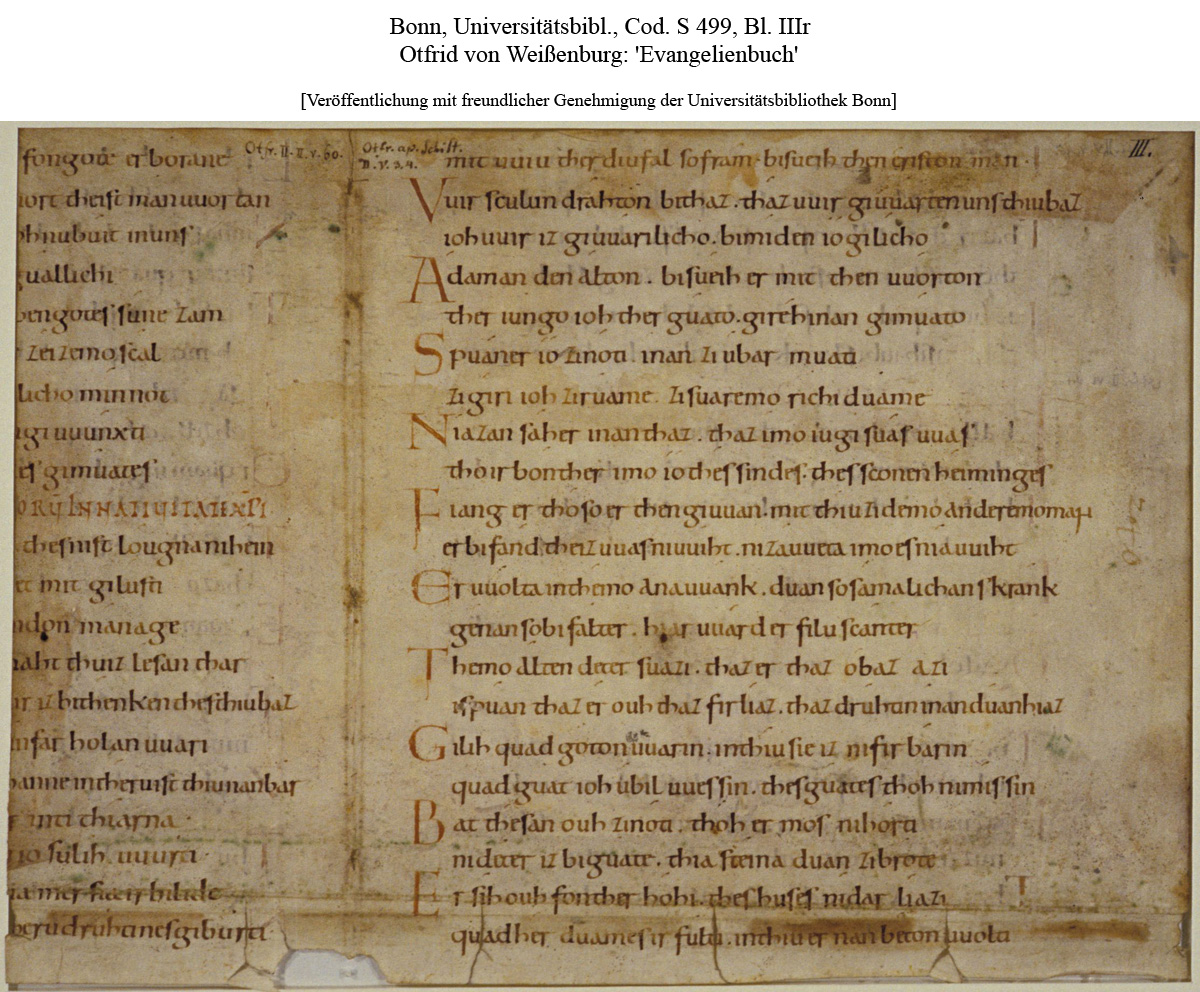 Bonn, Universitätsbibl., Cod. S 499, Bl. IIIr
Otfrid von Weißenburg: 'Evangelienbuch'
[Veröffentlichung mit freundlicher Genehmigung der Universitätsbibliothek Bonn]
III.
Otfr. II. II. v. 60.
Otfr. ap. Schilt.
II. v. 3. 4.
fon gote er borane
uort theist man uuortan
uallichi
sune zam
zeizemo scal
licho minnot
gi uuunxti
es gimuates
thes nist lougna nihein
mit gilusti
manage
maht thu iz lesan thar
ir iz bithenken thes thiu baz
in far holan uuari
uuanne in theru ist thiu nan bar
inti thiarna
io sulih uuurti
druhtines giburti
mit uuiu ther diufal so fram bisueih then eriston man
Vuir sculun drahton bithaz . thaz uuir giuuarten uns thiu baz
ioh uuir iz giuuarilicho . bimiden iogilicho
Adaman den alton . bisueih er mit then uuorton
ther iungo ioh ther guato . girihinan gimuato
Spuaner io zi noti . inan zi ubar muati
zi giri ioh zi ruame zi suaremo richiduame
Niazan saher inan thaz . thaz imo iu gisuas uuas
tho irbonther imo io thes sindes . thes sconen heiminges
Fiang er tho so er then giuuan . mit thiu zi demo anderemo man
er bifand theiz uuas niuuiht . ni zauueta imo es niauuiht
Er uuolta in themo anauuank . duan so samalichan skrank
genan so bifalter . hiar uuard er filu scanter
Themo alten deter suazi . thaz er thaz obaz azi
ispuan thaz er ouh thaz firliaz . thaz druhtin inan duan hiaz
Gilih quad goton uuarin . inthiu sie iz nifirbarin
quad guat ioh ubil uuessin . thes guates thoh nimissin
Bat thesan ouh zi noti . thoh er mos ni horti
ni deter iz bi guate . thia steina duan zi brote
Er sih ouh fon ther hohi . thes huses nidar liazi
quad her duames ir fulti . inthiu er nan beton uuolti